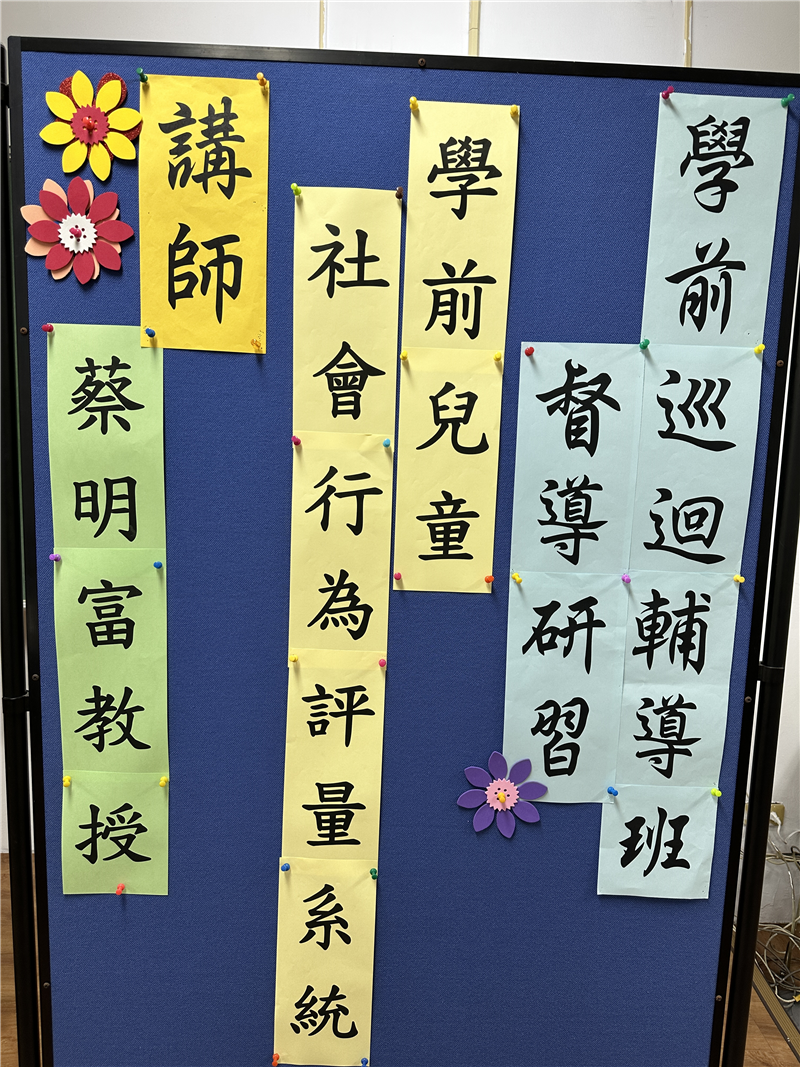 學前巡迴輔導班
督導研習
學前兒童
社會行為評量系統
講師
蔡明富教授